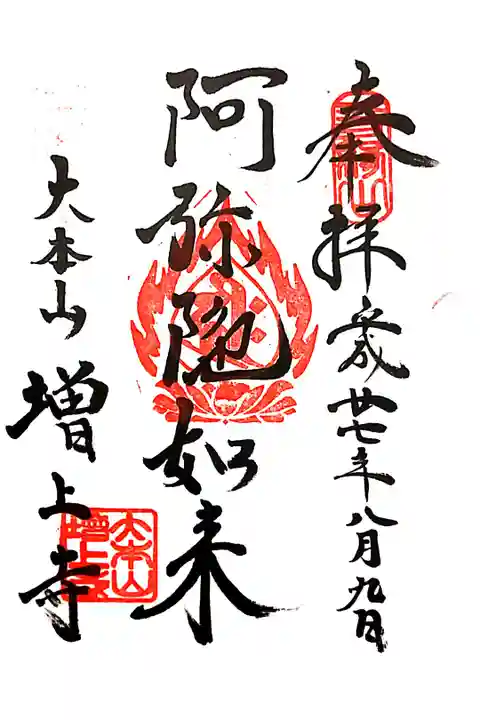 奉拝 平成廿七年八月九日
阿弥陀如来
大本山 増上寺
大本山
增上寺